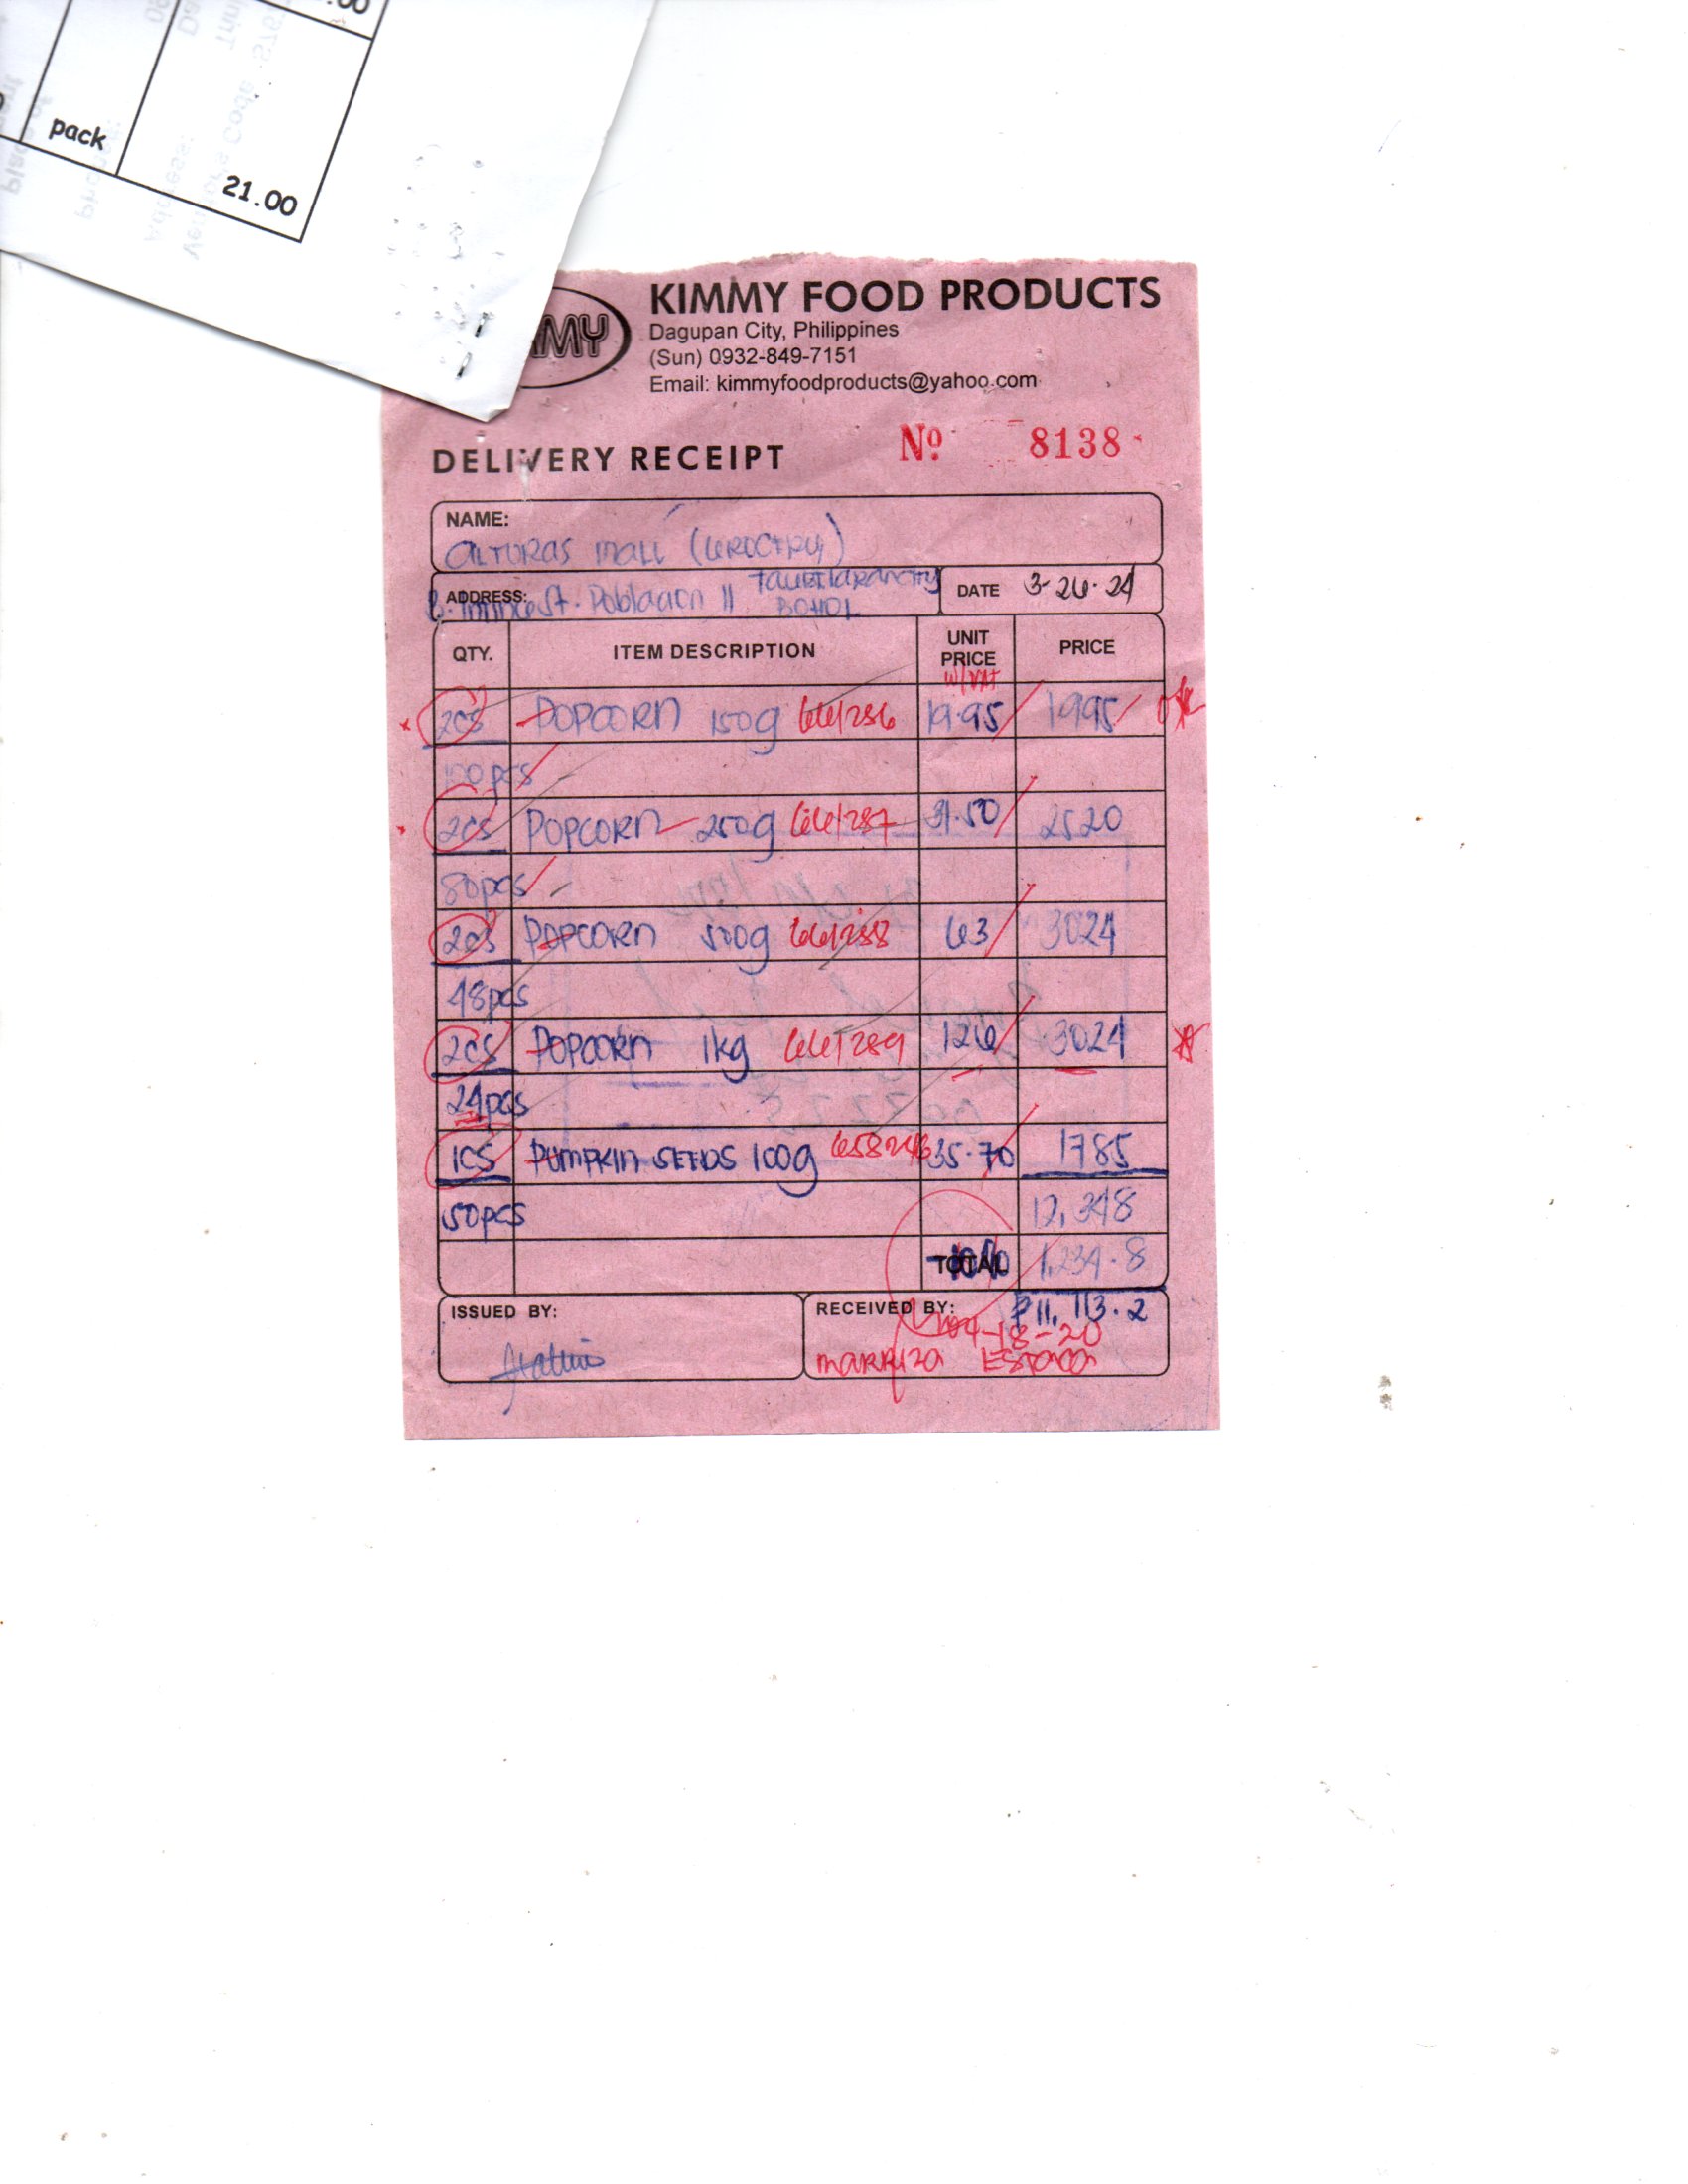 .00
pack
21.00
MY
KIMMY FOOD PRODUCTS
Dagupan City, Philippines
(Sun) 0932-849-7151
Email: kimmyfoodproducts@yahoo.com
DELIVERY RECEIPT
Nº 8138
NAME:
ALTURAS MALL (GROCERY)
ADDRESS: B. Inting St. Poblacion II Tagbilaran City
BOHOL
DATE 3-26-24
QTY. ITEM DESCRIPTION UNIT PRICE PRICE
W/VAT
2CS POPCORN 150g 661286 19.95 1995
100pcs
2CS POPCORN 250g 661287 31.50 2520
80pcs
2CS POPCORN 500g 661288 63 3024
48pcs
2CS POPCORN 1kg 661289 126 3024
24pcs
1CS PUMPKIN SEEDS 100g 658246 35.70 1785
50pcs 12,348
TOTAL -10% 1,234.8
ISSUED BY:
RECEIVED BY: ₱11,113.2
04-18-20